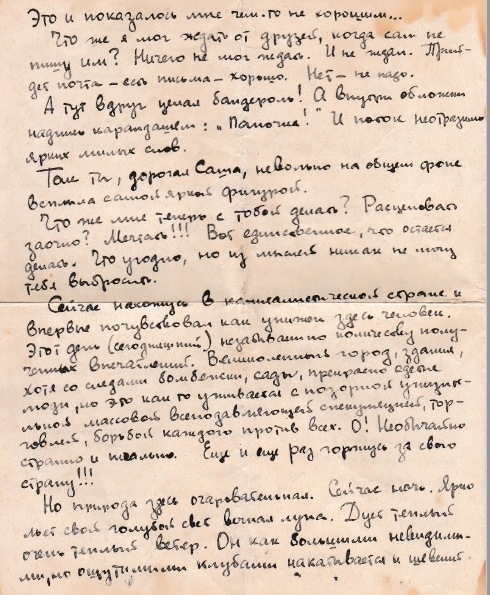 Это и показалось мне чем-то не хорошим...
Что же я мог ждать от друзей, когда сам не
пишу им? Ничего не мог ждать. И не ждал. Прий-
дет почта – есть письма – хорошо. Нет – не надо.
А тут вдруг целая бандероль! А внутри обложки
надпись карандашем: „Папочка!" И поток неотразимо
ярких милых слов.
Так ты, дорогая Саша, невольно на общем фоне
всплыла самой яркой фигурой.
Что же мне теперь с тобой делать? Расцеловать
заочно? Мечтать!!! Вот единственное, что остается
делать. Что угодно, но из мыслей никак не могу
тебя выбросить.
Сейчас нахожусь в капиталистической стране и
впервые почувствовал как унижен здесь человек.
Этот день (сегодняшний) незабываем по количеству полу-
ченных впечатлений. Великолепный город, здания,
хотя со следами бомбежки, сады, прекрасно одетые
люди, но это как то уживается с позорной унизите-
льной массовой всеподавляющей спекуляцией, тор-
говлей, борьбой каждого против всех. О! Необычайно
странно и печально. Еще и еще раз горжусь за свою
страну!!!
Но природа здесь очаровательная. Сейчас ночь. Ярко
льет свой голубой свет вечная луна. Дует теплый
очень теплый ветер. Он как большими невидимы-
ми, но ощутимыми клубами накатывается и шевелит